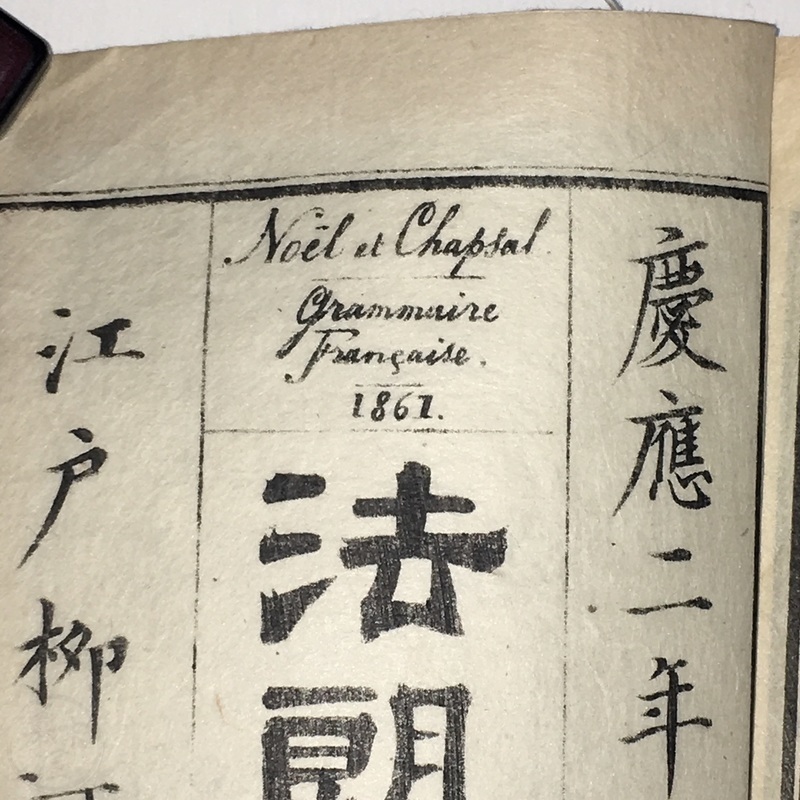 慶應二年
Noël et Chapsal
Grammaire
Française.
1861.
法朗
江户柳